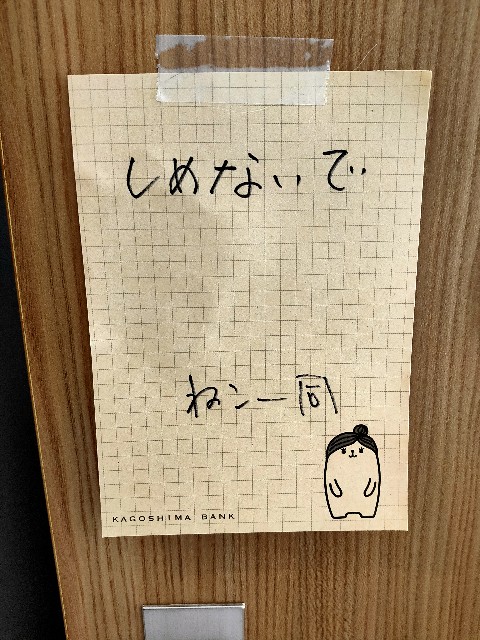 しめないで
ねこ一同
KAGOSHIMA BANK